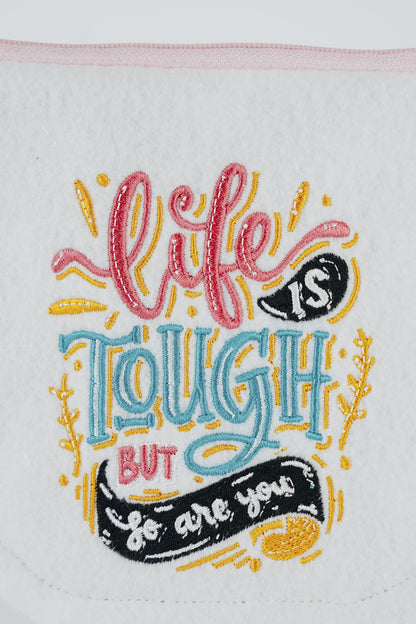 life
IS
TOUGH
BUT
so are you